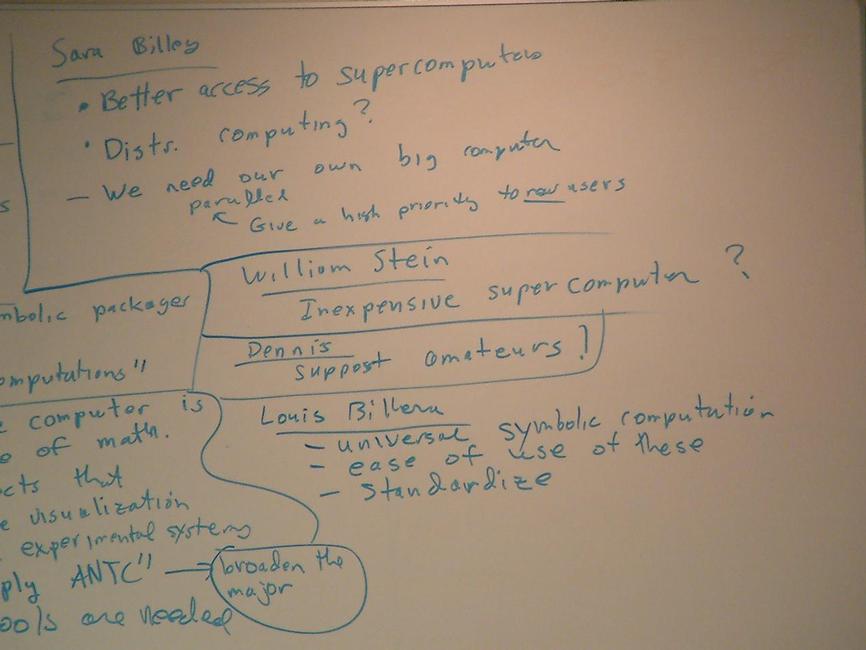 Sara Billey
• Better access to supercomputers
• Distr. computing?
- We need our own big computer
parallel
Give a high priority to new users
William Stein
Inexpensive supercomputer ?
Dennis
support amateurs!
Louis Billera
- universal symbolic computation
- ease of use of these
- Standardize
mbolic packages
omputations"
computer is
of math.
cts that
visualization
experimental systems
ply ANTC" → broaden the
major
ools are needed